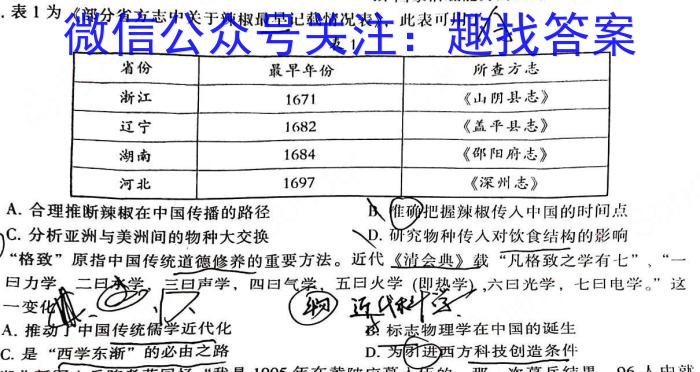 . 表1为《部分省方志中关于辣椒最早记载情况表》, 此表可用
微信公众号关注：趣找答案
表1
省份 最早年份 所查方志
浙江 1671 《山阴县志》
辽宁 1682 《盖平县志》
湖南 1684 《邵阳府志》
河北 1697 《深州志》
A. 合理推断辣椒在中国传播的路径 B. 准确把握辣椒传入中国的时间点
C. 分析亚洲与美洲间的物种大交换 D. 研究物种传入对饮食结构的影响
“格致”原指中国传统道德修养的重要方法。近代《清会典》载“凡格致之学有七”、“一
曰力学，二曰水学，三曰声学，四曰气学，五曰火学（即热学），六曰光学，七曰电学。”这
一变化
A. 推动了中国传统儒学近代化 B. 标志物理学在中国的诞生
C. 是“西学东渐”的必由之路 D. 为引进西方科技创造条件